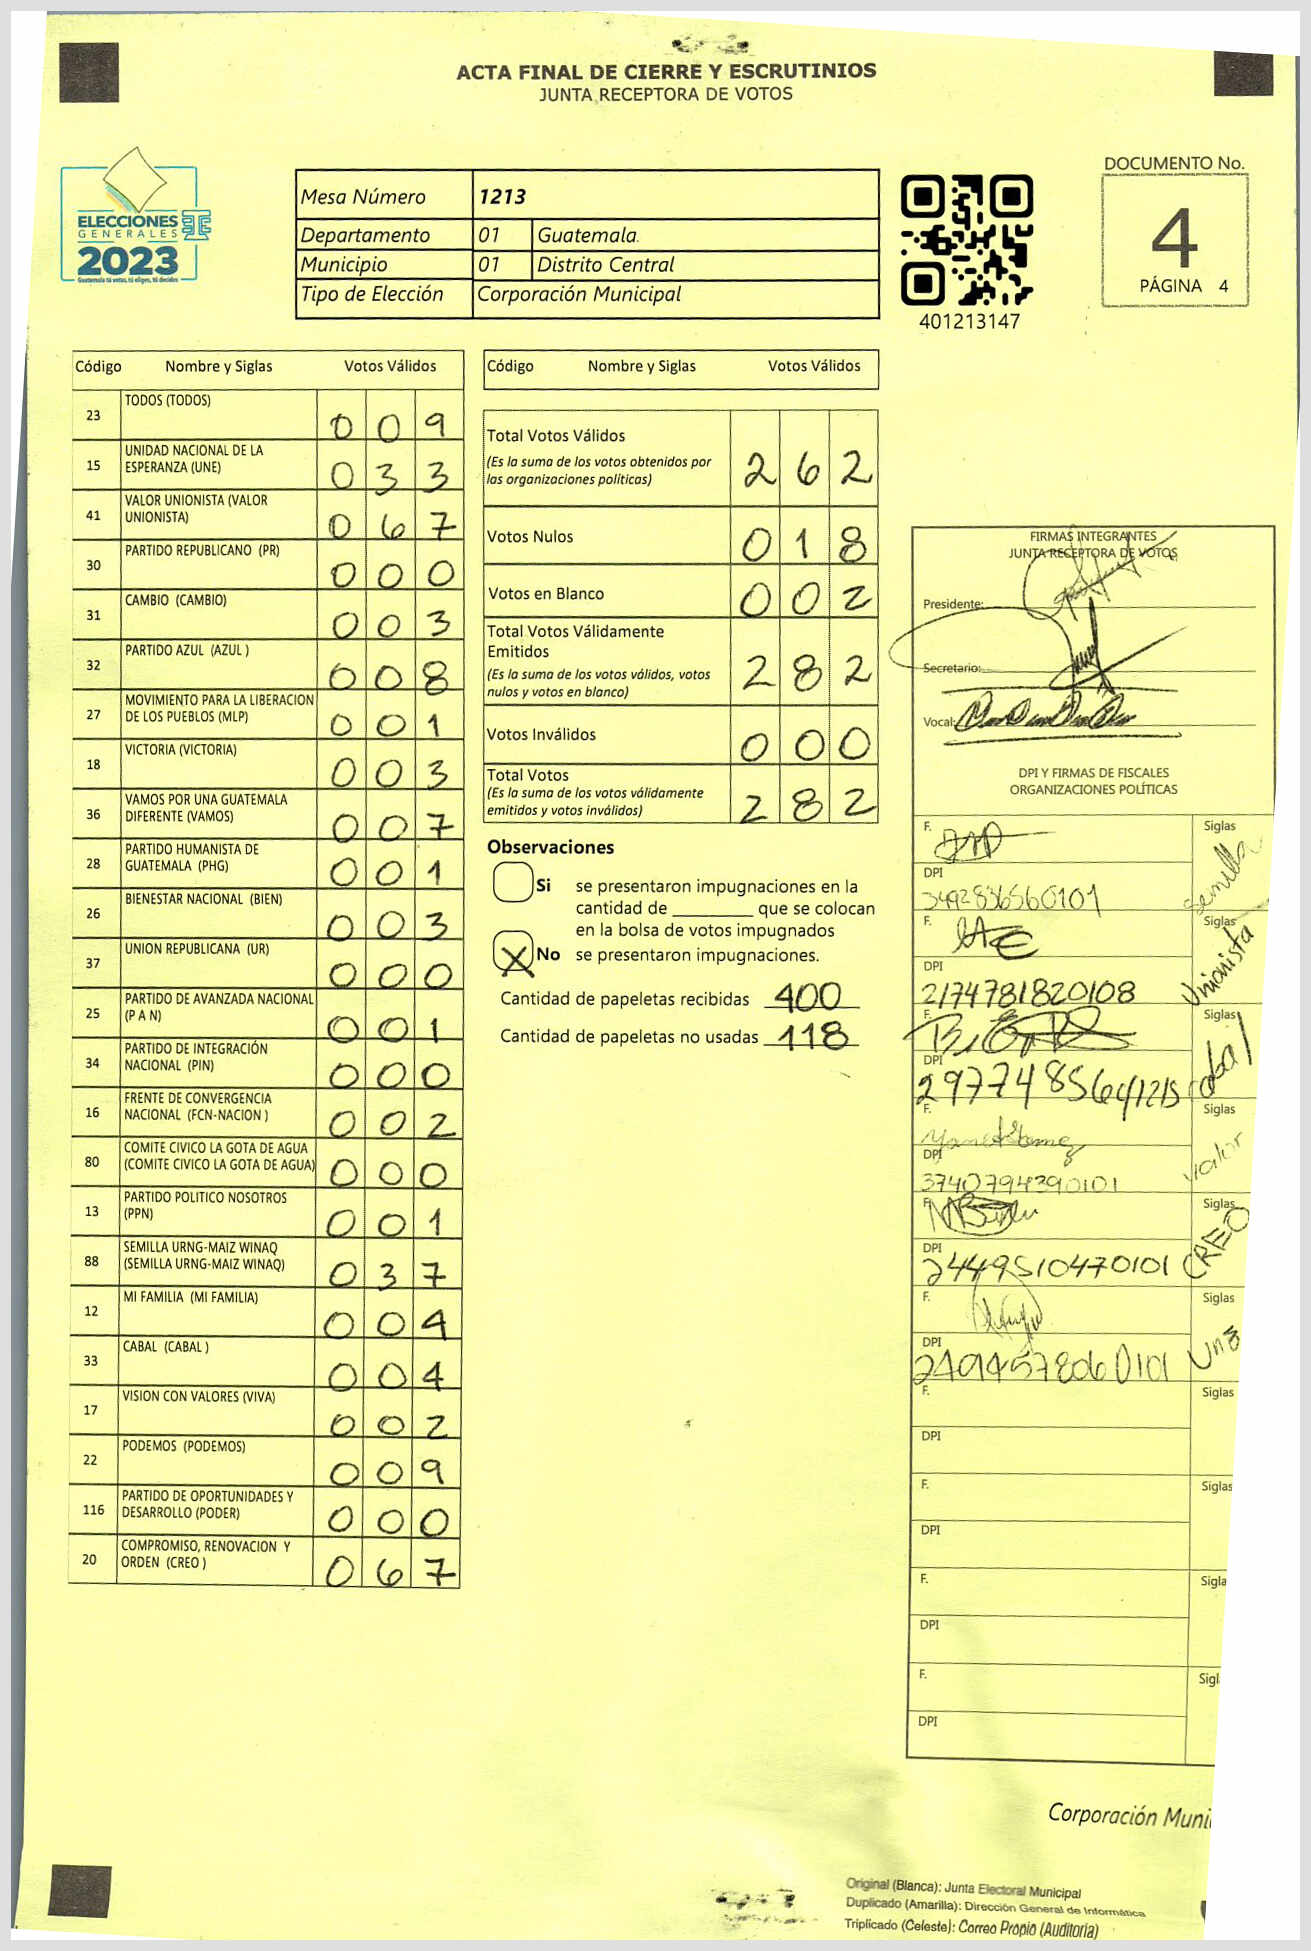 ACTA FINAL DE CIERRE Y ESCRUTINIOS
JUNTA RECEPTORA DE VOTOS
ELECCIONES
GENERALES
2023
Guatemala tú votas, tú eliges, tú decides
Mesa Número 1213
Departamento 01 Guatemala
Municipio 01 Distrito Central
Tipo de Elección Corporación Municipal
401213147
DOCUMENTO No.
4
PÁGINA 4
Código Nombre y Siglas Votos Válidos
23 TODOS (TODOS) 0 0 9
15 UNIDAD NACIONAL DE LA ESPERANZA (UNE) 0 3 3
41 VALOR UNIONISTA (VALOR UNIONISTA) 0 6 7
30 PARTIDO REPUBLICANO (PR) 0 0 0
31 CAMBIO (CAMBIO) 0 0 3
32 PARTIDO AZUL (AZUL ) 0 0 8
27 MOVIMIENTO PARA LA LIBERACION DE LOS PUEBLOS (MLP) 0 0 1
18 VICTORIA (VICTORIA) 0 0 3
36 VAMOS POR UNA GUATEMALA DIFERENTE (VAMOS) 0 0 7
28 PARTIDO HUMANISTA DE GUATEMALA (PHG) 0 0 1
26 BIENESTAR NACIONAL (BIEN) 0 0 3
37 UNION REPUBLICANA (UR) 0 0 0
25 PARTIDO DE AVANZADA NACIONAL (P A N) 0 0 1
34 PARTIDO DE INTEGRACIÓN NACIONAL (PIN) 0 0 0
16 FRENTE DE CONVERGENCIA NACIONAL (FCN-NACION ) 0 0 2
80 COMITE CIVICO LA GOTA DE AGUA (COMITE CIVICO LA GOTA DE AGUA) 0 0 0
13 PARTIDO POLITICO NOSOTROS (PPN) 0 0 1
88 SEMILLA URNG-MAIZ WINAQ (SEMILLA URNG-MAIZ WINAQ) 0 3 7
12 MI FAMILIA (MI FAMILIA) 0 0 4
33 CABAL (CABAL ) 0 0 4
17 VISION CON VALORES (VIVA) 0 0 2
22 PODEMOS (PODEMOS) 0 0 9
116 PARTIDO DE OPORTUNIDADES Y DESARROLLO (PODER) 0 0 0
20 COMPROMISO, RENOVACION Y ORDEN (CREO ) 0 6 7
Código Nombre y Siglas Votos Válidos
Total Votos Válidos
(Es la suma de los votos obtenidos por
las organizaciones políticas) 2 6 2
Votos Nulos 0 1 8
Votos en Blanco 0 0 2
Total Votos Válidamente
Emitidos
(Es la suma de los votos válidos, votos
nulos y votos en blanco) 2 8 2
Votos Inválidos 0 0 0
Total Votos
(Es la suma de los votos válidamente
emitidos y votos inválidos) 2 8 2
Observaciones
Si se presentaron impugnaciones en la
cantidad de ________ que se colocan
en la bolsa de votos impugnados
X No se presentaron impugnaciones.
Cantidad de papeletas recibidas 400
Cantidad de papeletas no usadas 118
FIRMAS INTEGRANTES
JUNTA RECEPTORA DE VOTOS
Presidente:
Secretario:
Vocal:
DPI Y FIRMAS DE FISCALES
ORGANIZACIONES POLÍTICAS
F. Siglas Semilla
DPI
F. Siglas Unionista
DPI 2174781820108
F. Siglas Cabal
DPI
F. Siglas Valor
DPI 3740794390101
F. Siglas CREO
DPI 2449510470101
F. Siglas Une
DPI 2494578060101
F. Siglas
DPI
F. Siglas
DPI
F. Sigla
DPI
F. Sigl
DPI
Corporación Muni
Original (Blanca): Junta Electoral Municipal
Duplicado (Amarilla): Dirección General de Informática
Triplicado (Celeste): Correo Propio (Auditoria)